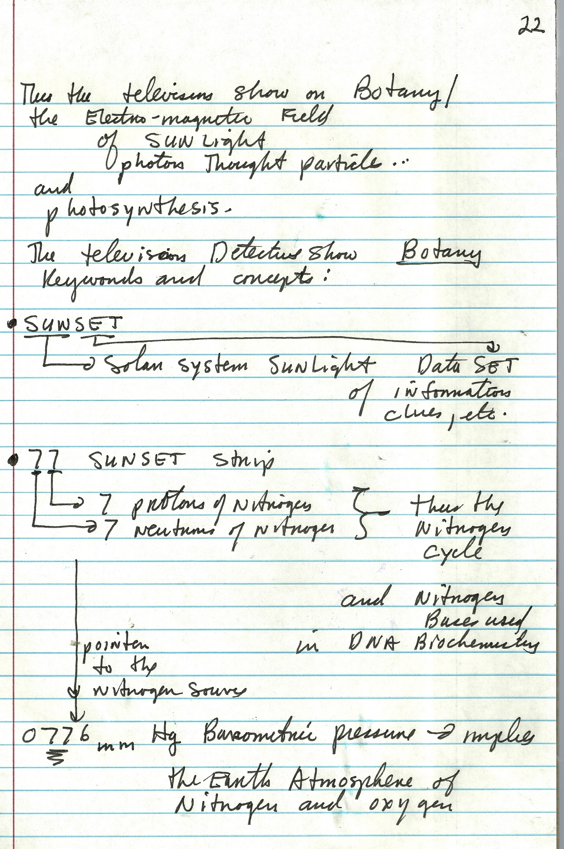 22
Thus the television show on Botany/
the Electro-magnetic Field
of SUNLight
photon Thought particle...
and
photosynthesis.
The television Detective show Botany
Keywords and concepts:
• SUNSET
Solar System SUNLight Data SET
of information
clues, etc.
• 77 SUNSET Strip
7 protons of Nitrogen
7 Neutrons of Nitrogen
thus the
Nitrogen
Cycle
and Nitrogen
Bases used
in DNA Biochemistry
pointer
to the
Nitrogen Source
0776 mm Hg Barometric pressure → implies
the Earth Atmosphere of
Nitrogen and oxygen